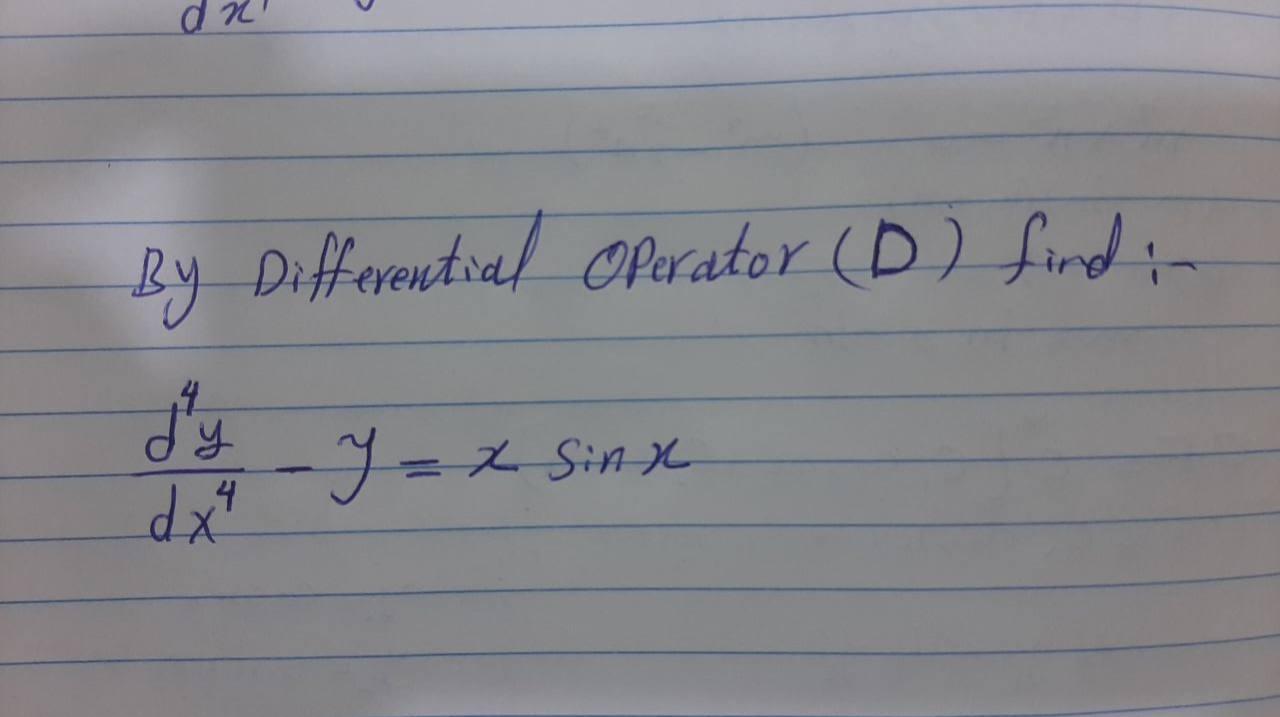 dx
By Differential Operator (D) find :-
d⁴y/dx⁴ - y = x sin x